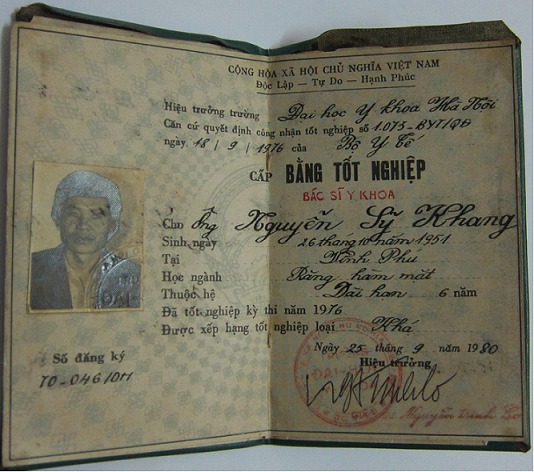 CỘNG HÒA XÃ HỘI CHỦ NGHĨA VIỆT NAM
Độc Lập — Tự Do — Hạnh Phúc
Hiệu trưởng trường Đại học Y khoa Hà Nội
Căn cứ quyết định công nhận tốt nghiệp số 1.075-BYT/QĐ
ngày 18/9/1976 của Bộ Y Tế
CẤP BẰNG TỐT NGHIỆP
BÁC SĨ Y KHOA
Cho Ông Nguyễn Sỹ Khang
Sinh ngày 26 tháng 10 năm 1951
Tại Vĩnh Phú
Học ngành Răng hàm mặt
Thuộc hệ Dài hạn 6 năm
Đã tốt nghiệp kỳ thi năm 1976
Được xếp hạng tốt nghiệp loại Khá
Ngày 25 tháng 9 năm 1980
Hiệu trưởng
Số đăng ký
ĐẠI
Nguyễn trinh